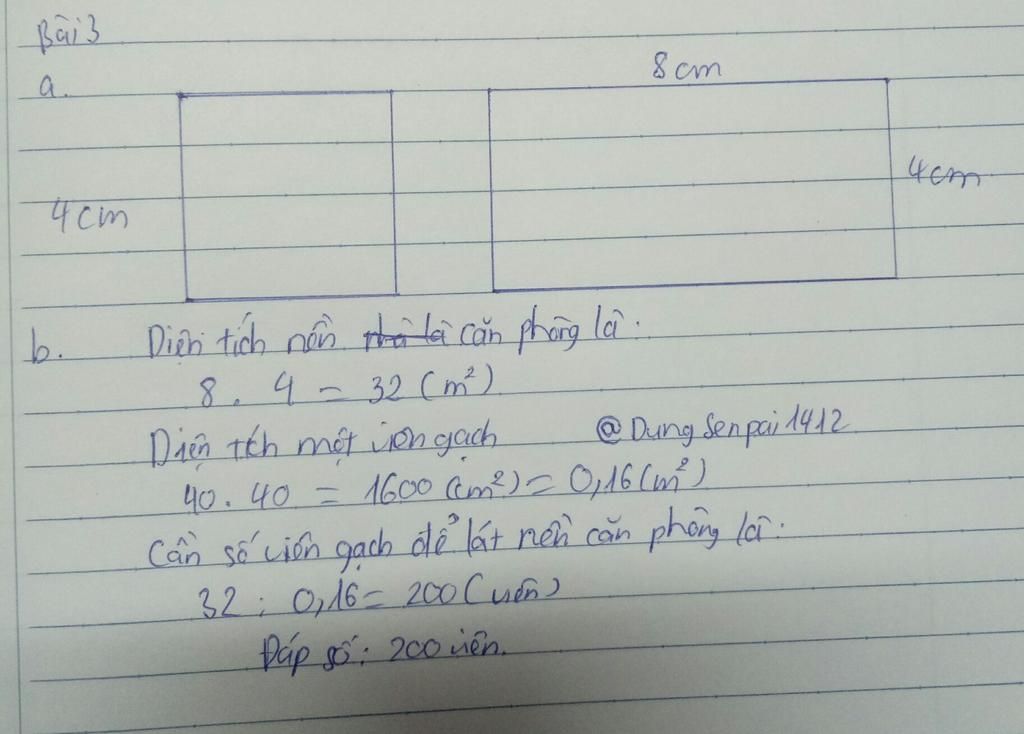 Bài 3
a.
8 cm
4 cm
4 cm
b. Diện tích nền nhà là căn phòng là:
8 . 4 = 32 (m²)
Diện tích một viên gạch @DungSenpai1412
40 . 40 = 1600 (cm²) = 0,16 (m²)
Cần số viên gạch để lát nền căn phòng là:
32 : 0,16 = 200 (viên)
Đáp số: 200 viên.